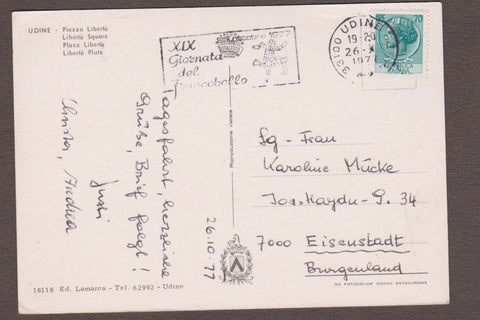 UDINE - Piazza Libertà
Libertà Square
Place Libertà
Libertà Platz
XIX
Giornata
del
Francobollo
ottobre 1977
33100 UDINE
19-20
26.X
1977
70
Tagesfahrt, herzliche
Grüße, Brief folgt!
Christa, Andrea
26.10.77
Riproduzione vietata
Sg. Frau
Karoline Mücke
Jos. Haydn-G. 34
7000 Eisenstadt
Burgenland
18118 Ed. Lamarca - Tel. 62992 - Udine
DA FOTOCOLOR KODAK EKTACHROME